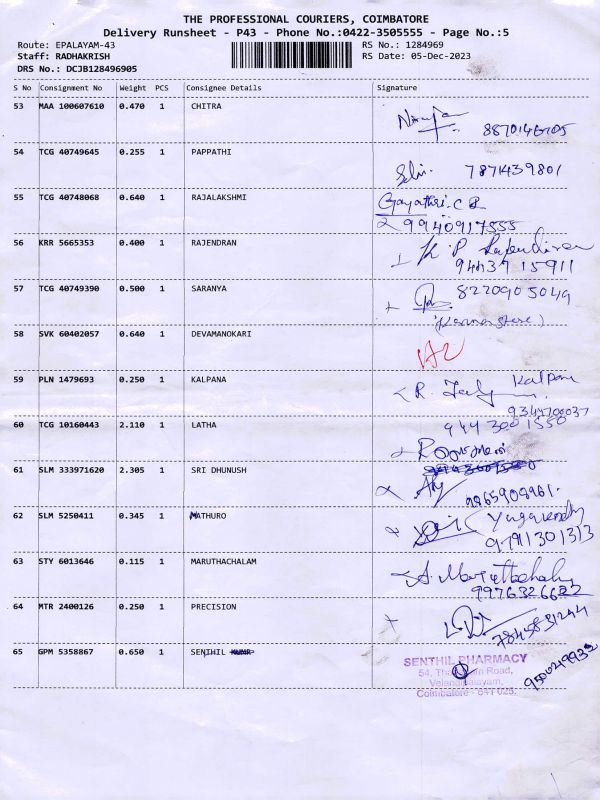 THE PROFESSIONAL COURIERS, COIMBATORE
Delivery Runsheet - P43 - Phone No.:0422-3505555 - Page No.:5
Route: EPALAYAM-43 RS No.: 1284969
Staff: RADHAKRISH RS Date: 05-Dec-2023
DRS No.: DCJB128496905
S No Consignment No Weight PCS Consignee Details Signature
53 MAA 100607610 0.470 1 CHITRA
54 TCG 40749645 0.255 1 PAPPATHI
Selvi. 7871439801
55 TCG 40748068 0.640 1 RAJALAKSHMI Gayathri.C B
9940917555
56 KRR 5665353 0.400 1 RAJENDRAN K. P Rajendiran
94437 15911
57 TCG 40749390 0.500 1 SARANYA 8220905049
58 SVK 60402057 0.640 1 DEVAMANOKARI
59 PLN 1479693 0.250 1 KALPANA R. Kalpana
9344700037
60 TCG 10160443 2.110 1 LATHA 944 300 1550
61 SLM 333971620 2.305 1 SRI DHUNUSH
9865908961.
62 SLM 5250411 0.345 1 MATHURO
9791301313
63 STY 6013646 0.115 1 MARUTHACHALAM A. Maruthachalam
9976326622
64 MTR 2400126 0.250 1 PRECISION
7845831244
65 GPM 5358867 0.650 1 SENTHIL
SENTHIL PHARMACY
54, Road,
Coimbatore - 641 025.